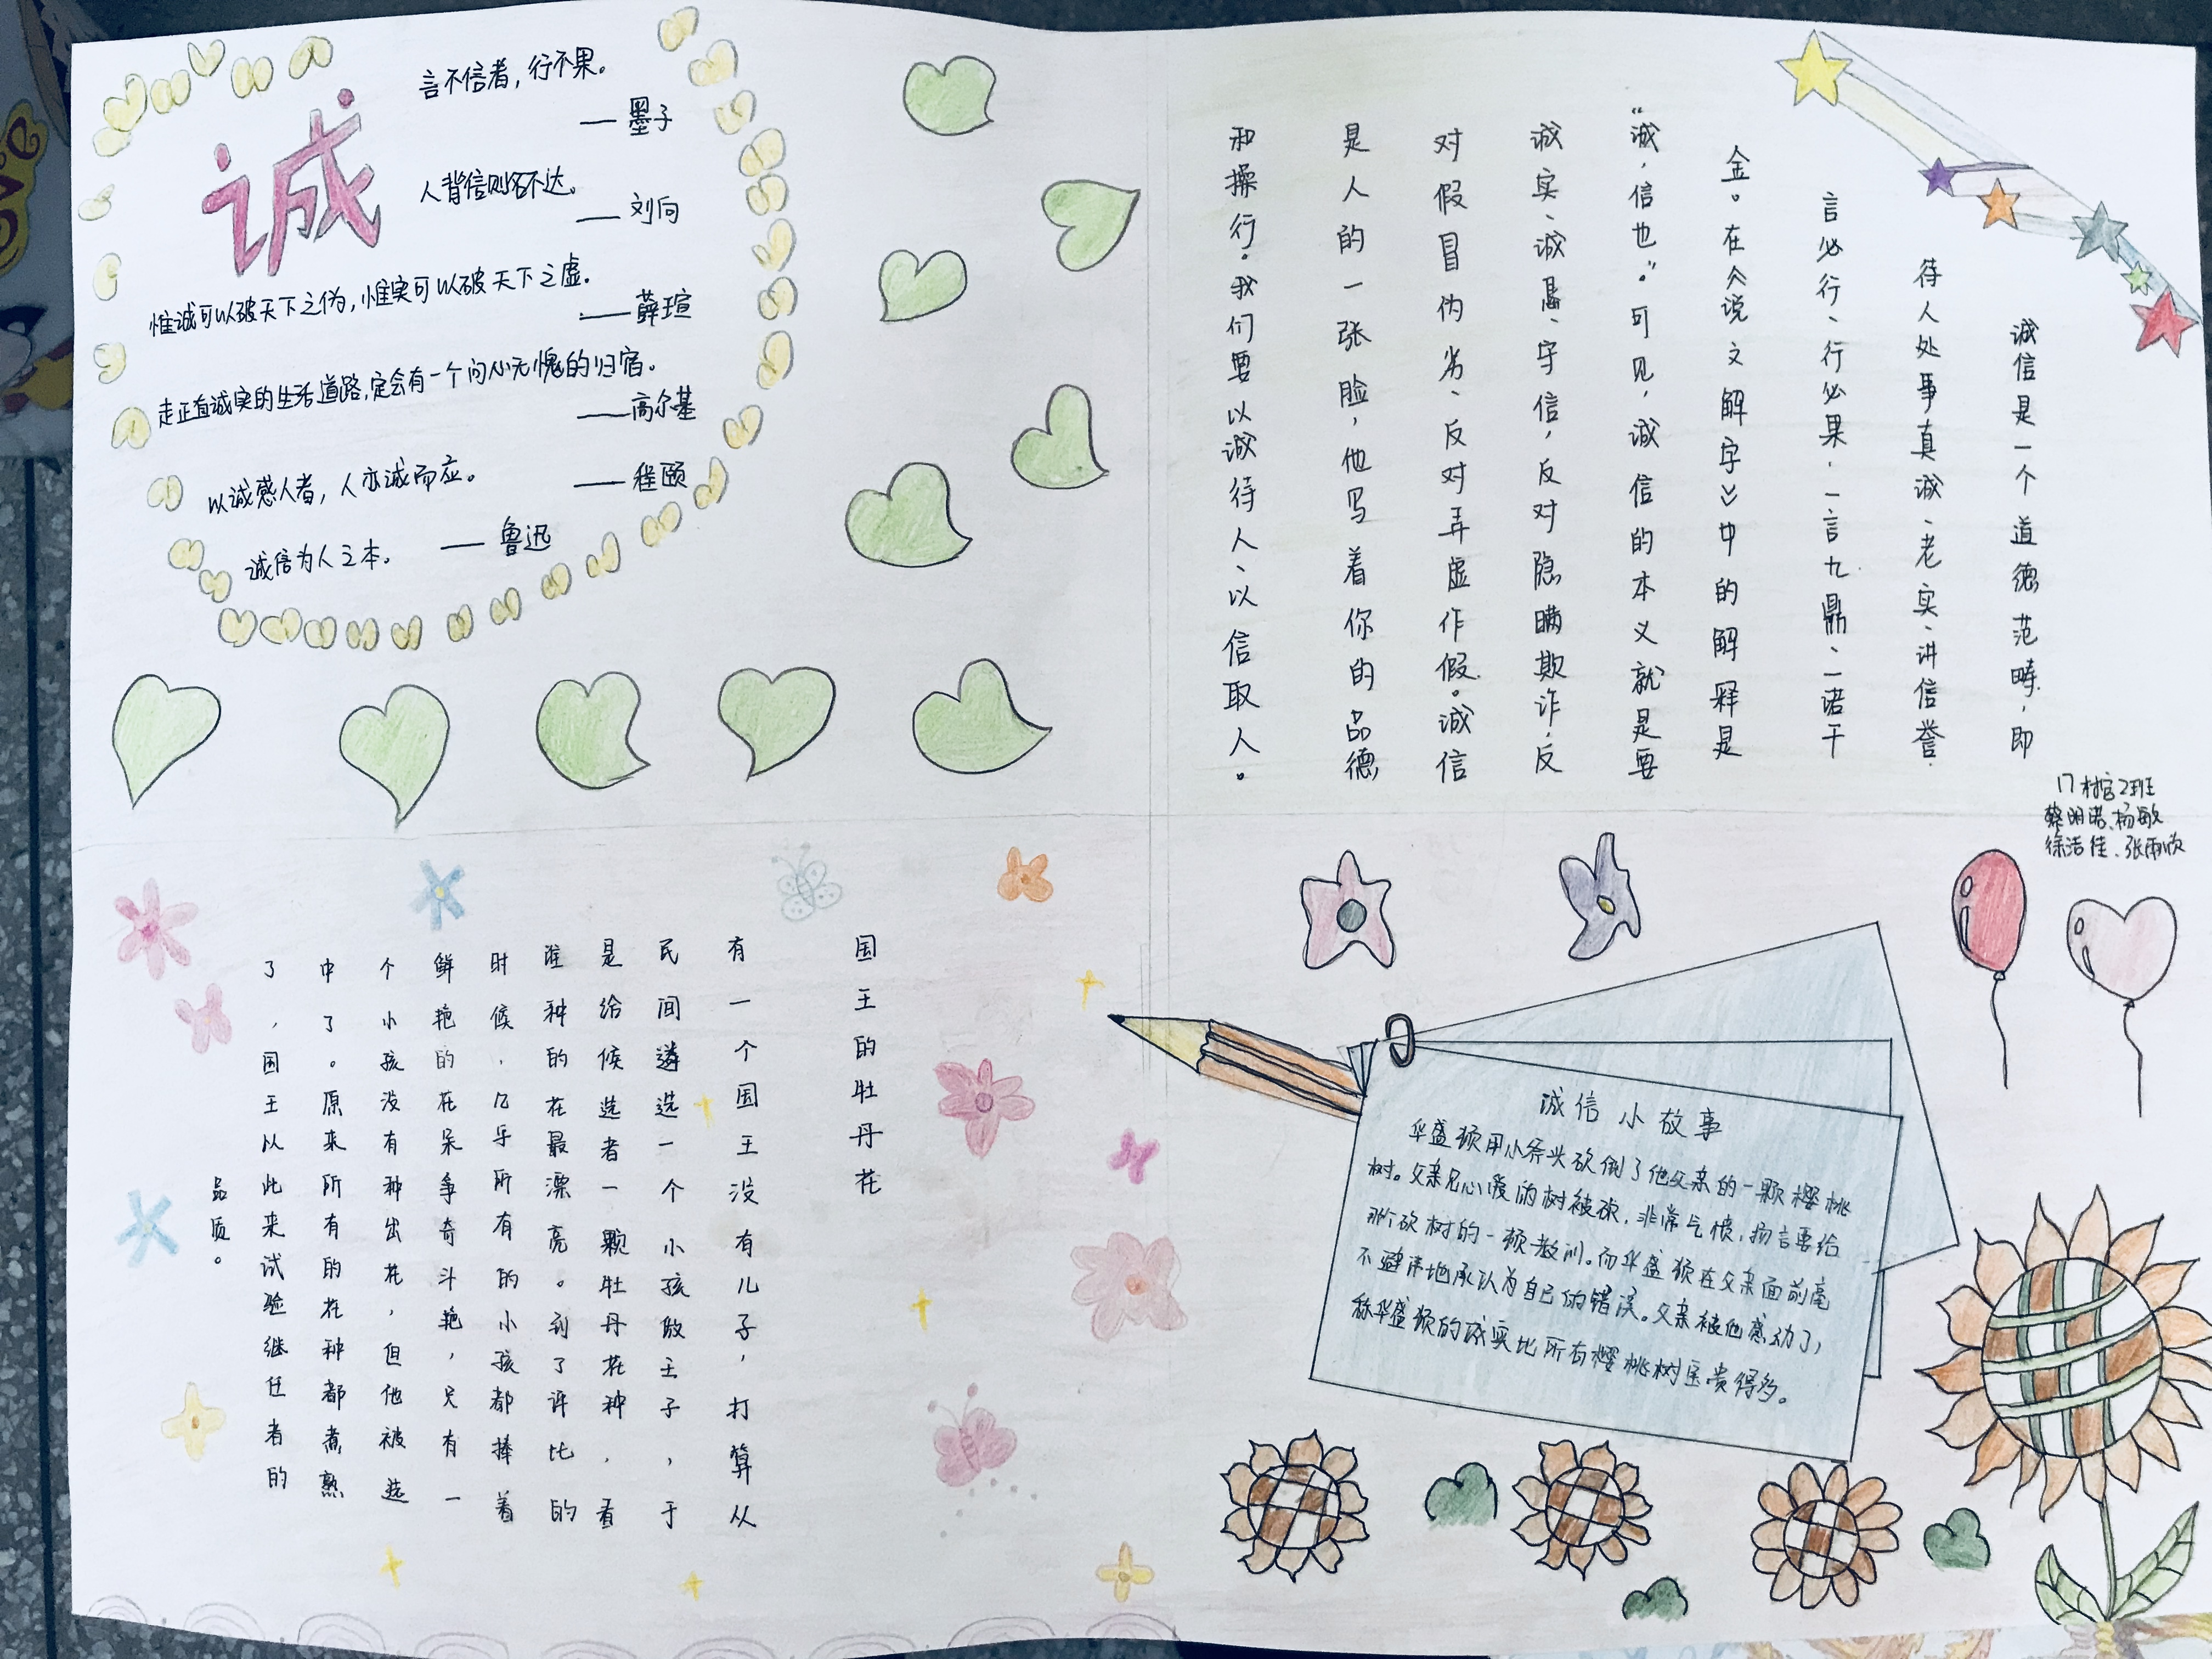 诚
言不信者，行不果。
——墨子
人背信则名不达。
——刘向
惟诚可以破天下之伪，惟实可以破天下之虚。
——薛瑄
走正直诚实的生活道路，定会有一个问心无愧的归宿。
——高尔基
以诚感人者，人亦诚而应。
——程颐
诚信为人之本。——鲁迅
诚信是一个道德范畴，即
待人处事真诚、老实、讲信誉
言必行、行必果，一言九鼎、一诺千
金。在《说文解字》中的解释是
“诚，信也”。可见，诚信的本义就是要
诚实、诚恳、守信，反对隐瞒欺诈、反
对假冒伪劣、反对弄虚作假。诚信
是人的一张脸，他写着你的品德
和操行。我们要以诚待人、以信取人。
17村官2班
蔡明诺、杨敏
徐洁佳、张雨欣
国王的牡丹花
有一个国王没有儿子，打算从
民间遴选一个小孩做王子，于
是给候选者一颗牡丹花种，看
谁种的花最漂亮。到了评比的
时候，几乎所有的小孩都捧着
鲜艳的花朵争奇斗艳，只有一
个小孩没有种出花，但他被选
中了。原来所有的花种都煮熟
了，国王以此来试验继任者的
品质。
诚信小故事
华盛顿用小斧头砍倒了他父亲的一颗樱桃
树。父亲见心爱的树被砍，非常气愤，扬言要给
那个砍树的一顿教训。而华盛顿在父亲面前毫
不避讳地承认为自己的错误。父亲被他感动了，
称华盛顿的诚实比所有樱桃树宝贵得多。